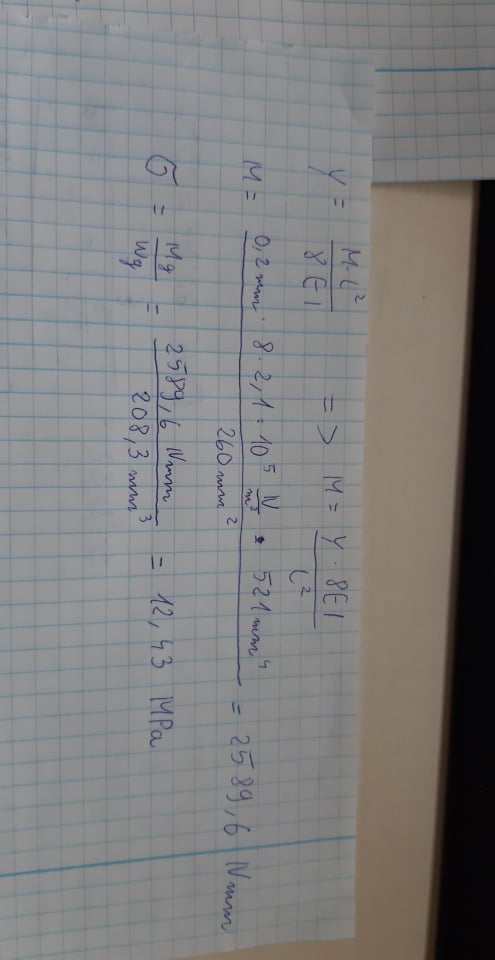 y = M·l² / 8EI => M = y · 8EI / l²
M = 0,2mm · 8 · 2,1 · 10⁵ N/m² · 521mm⁴ / 260mm² = 2589,6 Nmm
σ = Mg / Wg = 2589,6 Nmm / 208,3mm³ = 12,43 MPa